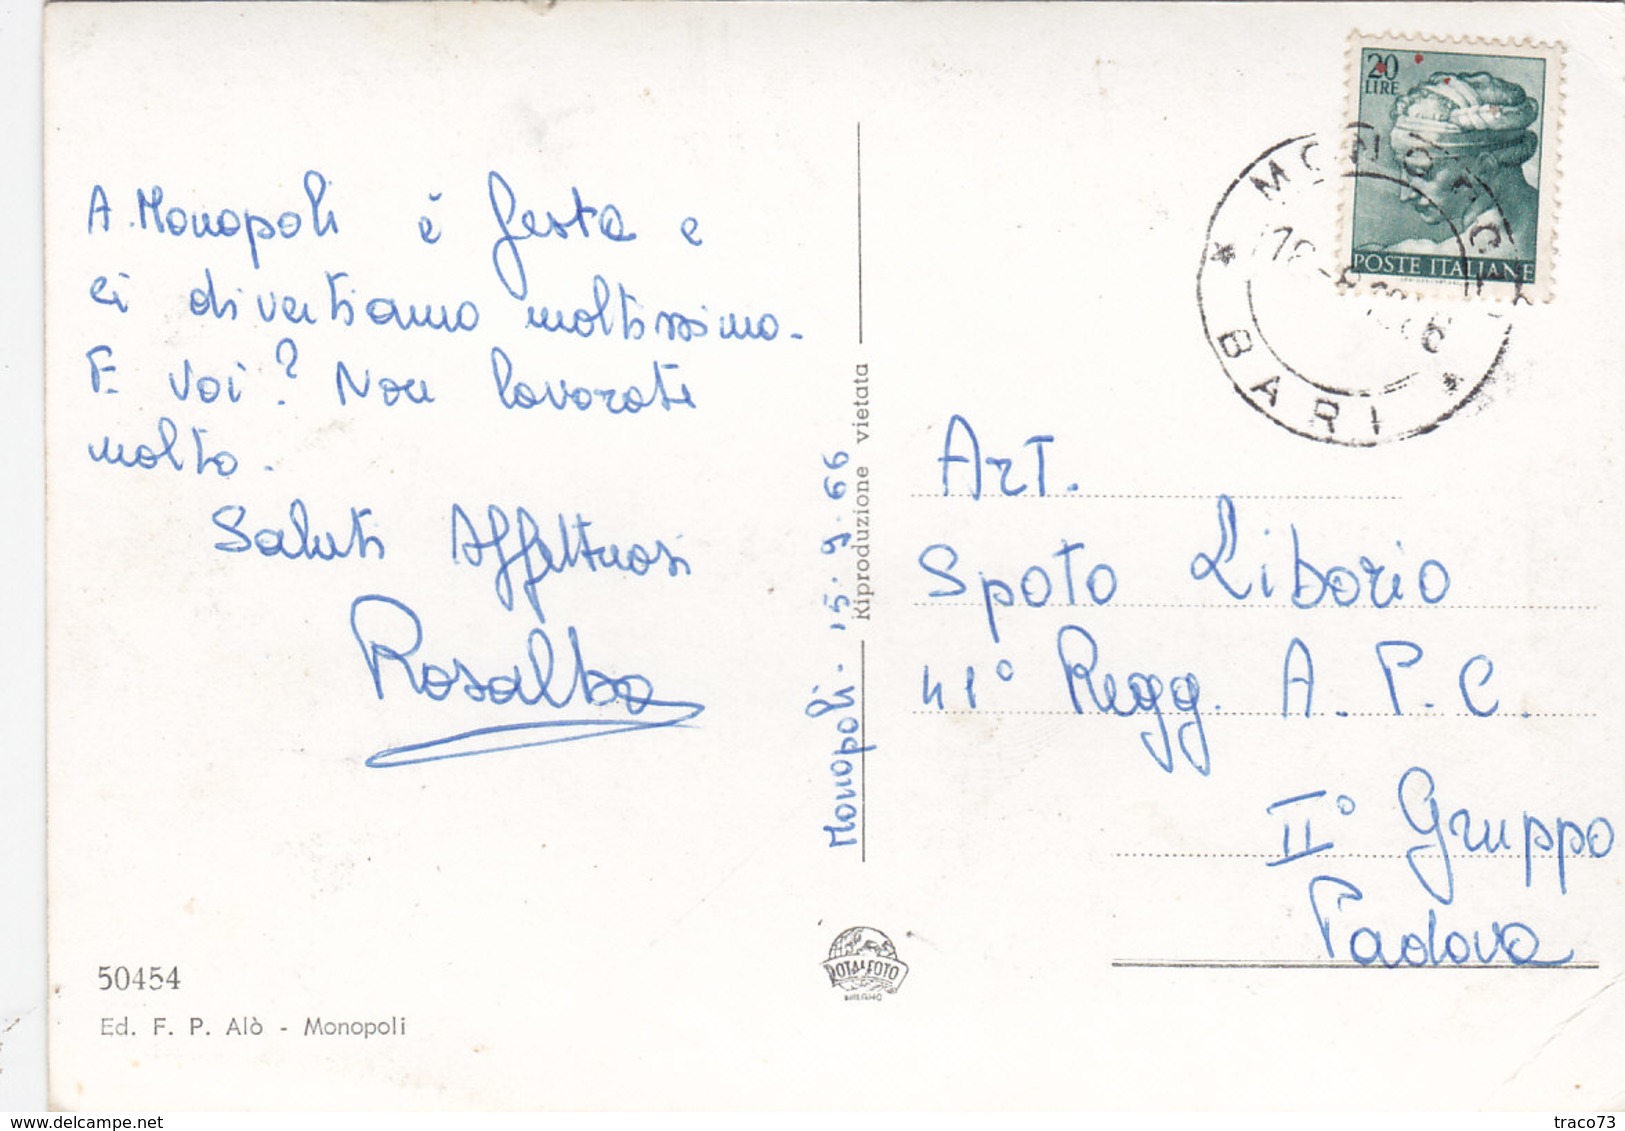 A Monopoli è festa e
ci divertiamo moltissimo.
E voi? Non lavorate
molto.
Saluti Affettuosi
Rosalba
50454
Ed. F. P. Alò - Monopoli
Monopoli. 15.9.66
Riproduzione vietata
ROTALFOTO
MILANO
20
LIRE
POSTE ITALIANE
BARI
Art.
Spoto Liborio
41° Regg. A. P. C.
II° Gruppo
Padova
www.delcampe.net
traco73